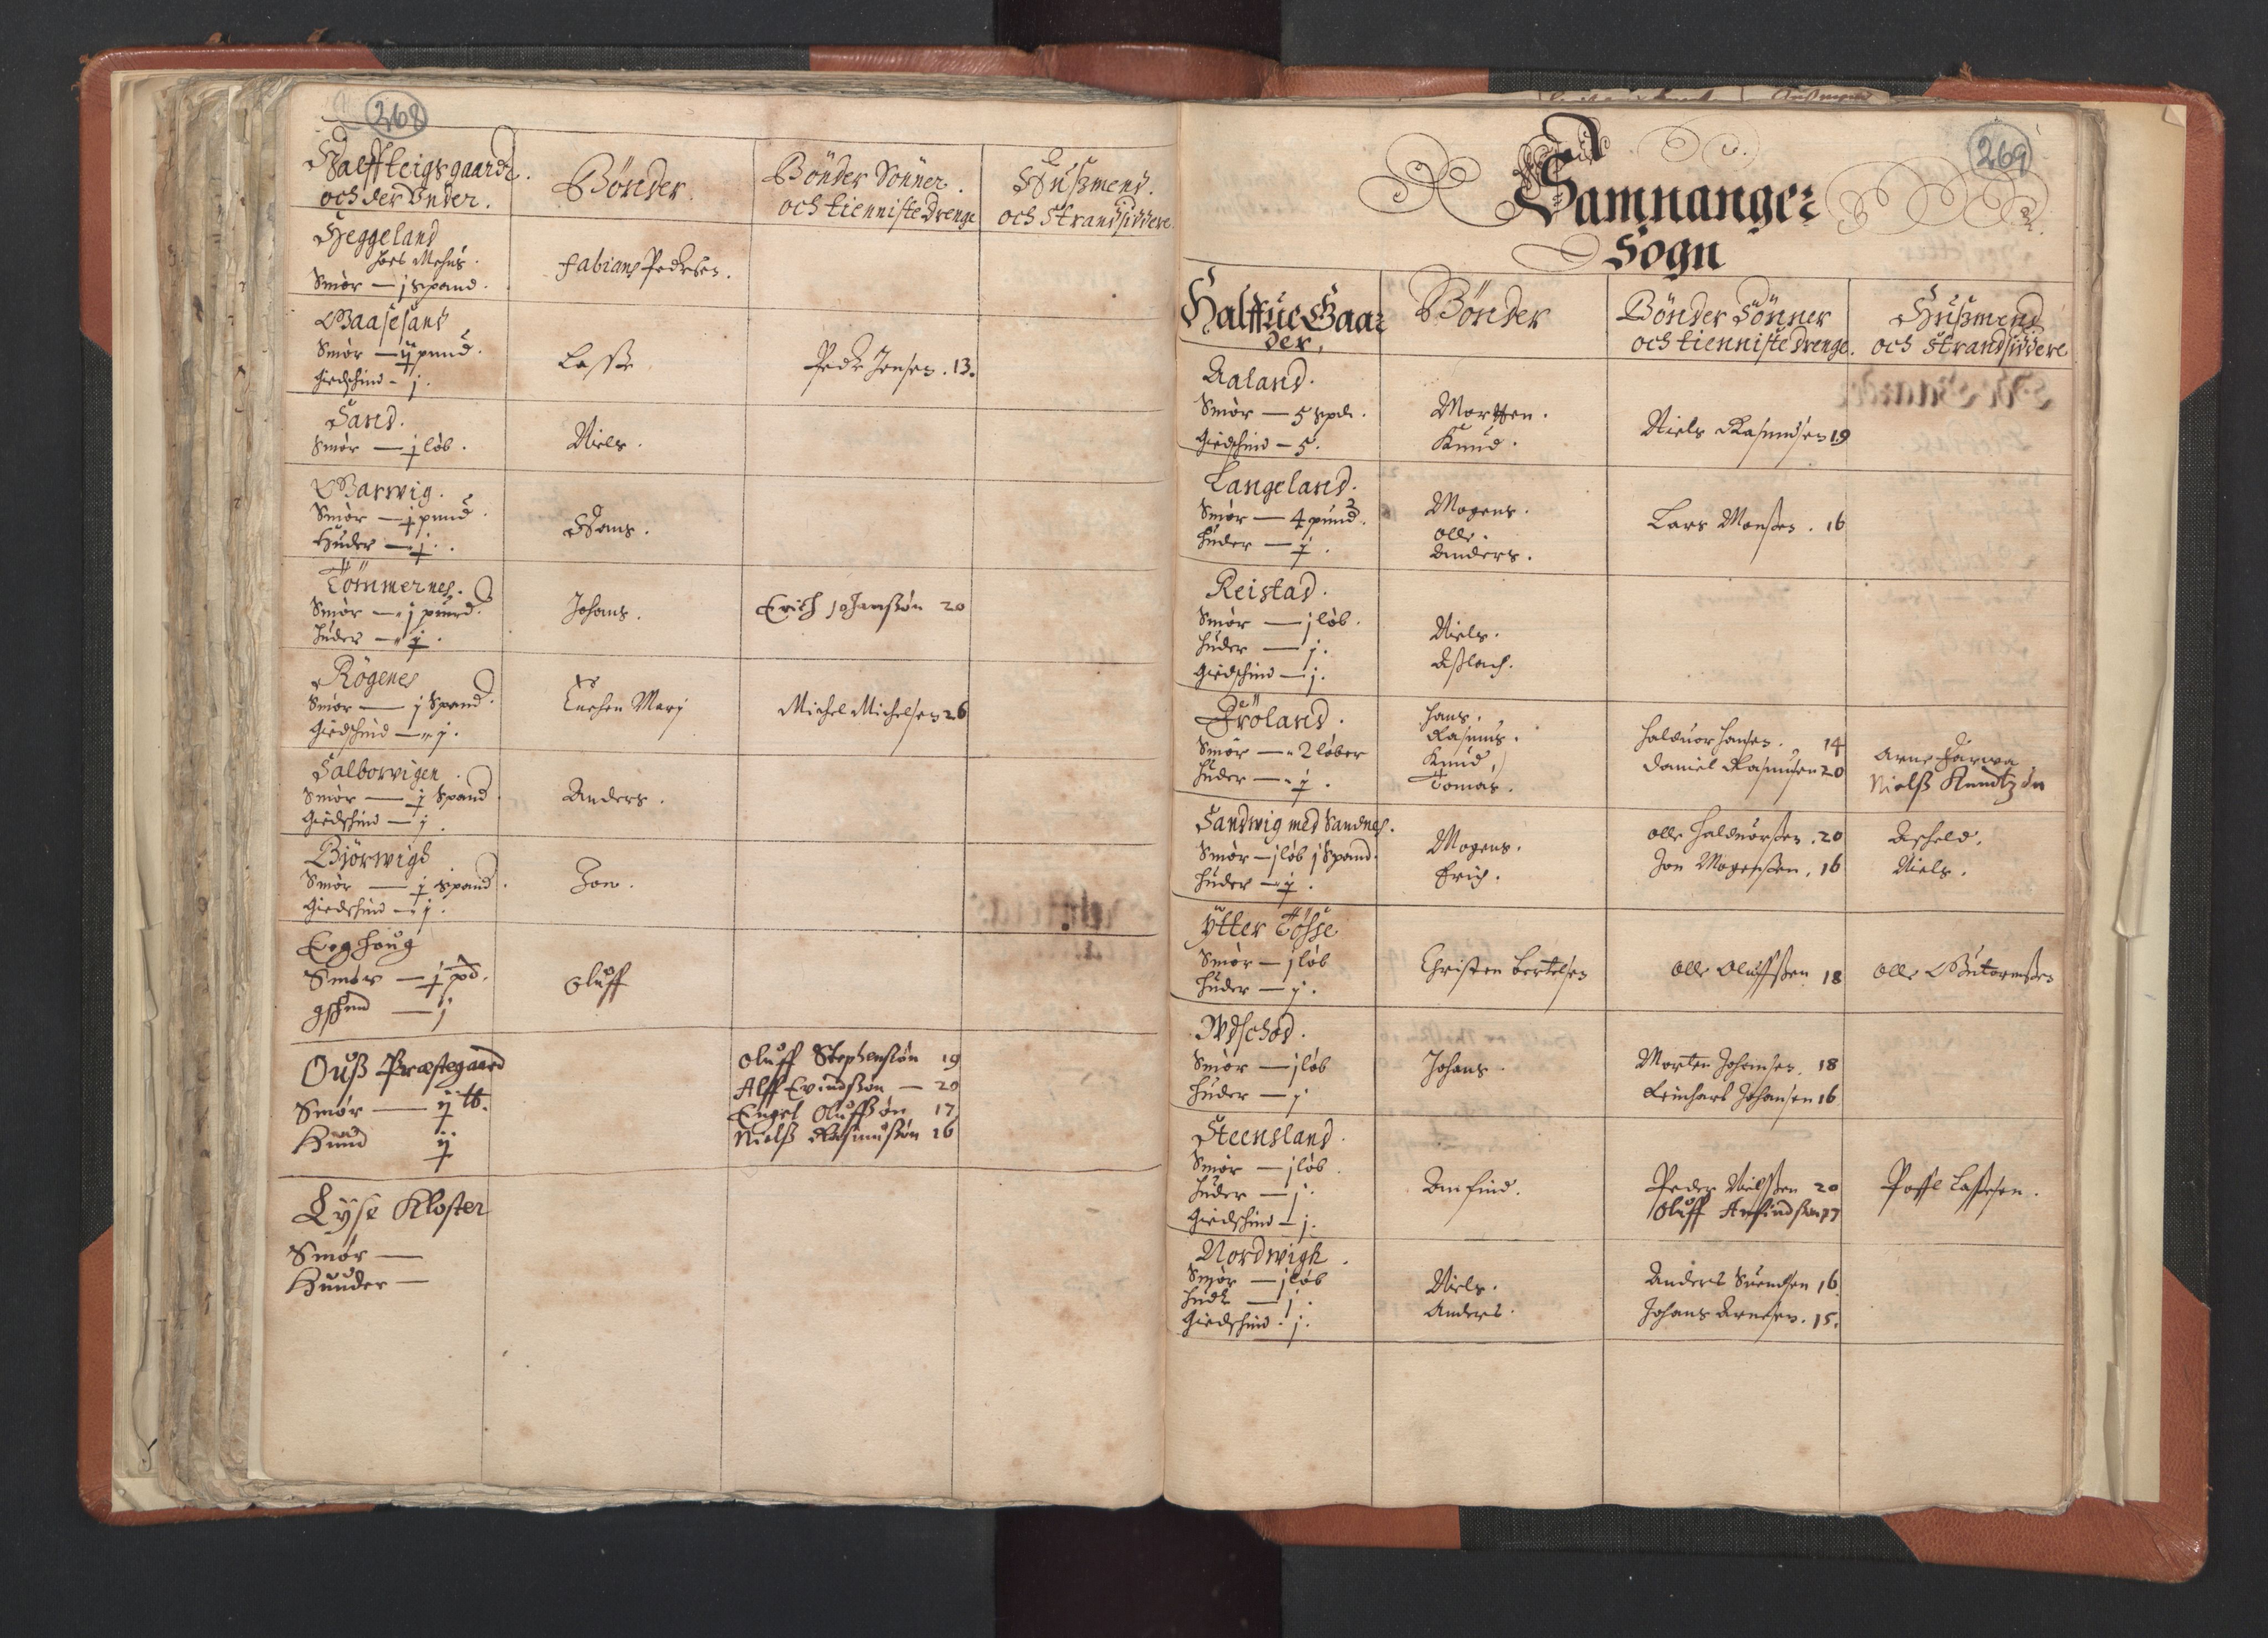 268
Halffleigs gaarde
och der Under.
Bönder.
Bönder Sönner.
och tienniste Drenge
Hussmend.
och Strandsiddere
Heggeland
Smör — j Spand.
Fabians Pedersen.
Waagesand
Smör — ij pund.
Giedschind - j.
Lasse
Peder Jensen. 13.
Sand.
Smör — j löb.
Niels.
Warwig.
Smör — j pund.
Huder — j.
Hans.
Tömmernes.
Smör — j pund.
Huder — j.
Johans.
Erich Johanssön 20
Rögenes
Smör — j Spand.
Giedschind — j.
Enchen Marj
Michel Michelsen 26
Salborwigen
Smör — j Spand
Giedschind — j
Anders.
Björwigh
Smör — j Spand.
Giedschind — j.
Jon.
Eeghoug
Smör — j pd.
gschind — j
Oluff
Ouss Præstegaard
Smör — ij lb.
Huud ij
Oluff Stephensön 19
Alff Evindssön — 20
Engel Oluffsön 17
Nielss Rasmussön 16
Lyse Kloster
Smör —
Huuder —
269
Samnanger
Sogn
Halffue Gaar
der.
Bönder
Bönder Sönner
och tienniste drenge.
Hussmend
och Strandsiddere
Aaland.
Smör — 5 Spd.
Giedschind — 5.
Mortten.
Knud.
Niels Rasmusen 19
Langeland.
Smör — 4 pund.
Huder — j.
Mogens.
Olle.
Anders.
Lars Monssen. 16
Reistad.
Smör — j löb.
Huder — j.
Giedschind — j.
Niels.
Asslach.
Fröland.
Smör — 2 löber
Huder — j.
Hans.
Rasmus.
Knud.
Tomas.
Haldvor Hansen. 14
Daniel Rasmusen 20
Arne Farwa
Nielss Knudtzön
Sandwig med Sandnes.
Smör — j löb j Spand.
Huder — j.
Mogens.
Erich.
Olle Haldvorssen. 20
Jon Mogenssen. 16
Askeld.
Niels.
Ytter Tösse
Smör — j löb
Huder — j.
Christen Bertelsen
Olle Oluffssen 18
Olle Gutormssen
Ydschod.
Smör — j löb
Huder — j
Johans.
Morten Johansen. 18
Reinhart Johansen 16
Steensland.
Smör — j löb.
Huder — j.
Giedschind — j.
Amfind.
Peder Nielssen 20
Oluff Amfindssen 17
Poffl Lassesen.
Nordwigh.
Smör — j löb
Hude — j.
Giedschind. j.
Niels.
Anders.
Anders Suendsen 16
Johans Arnesen. 15.